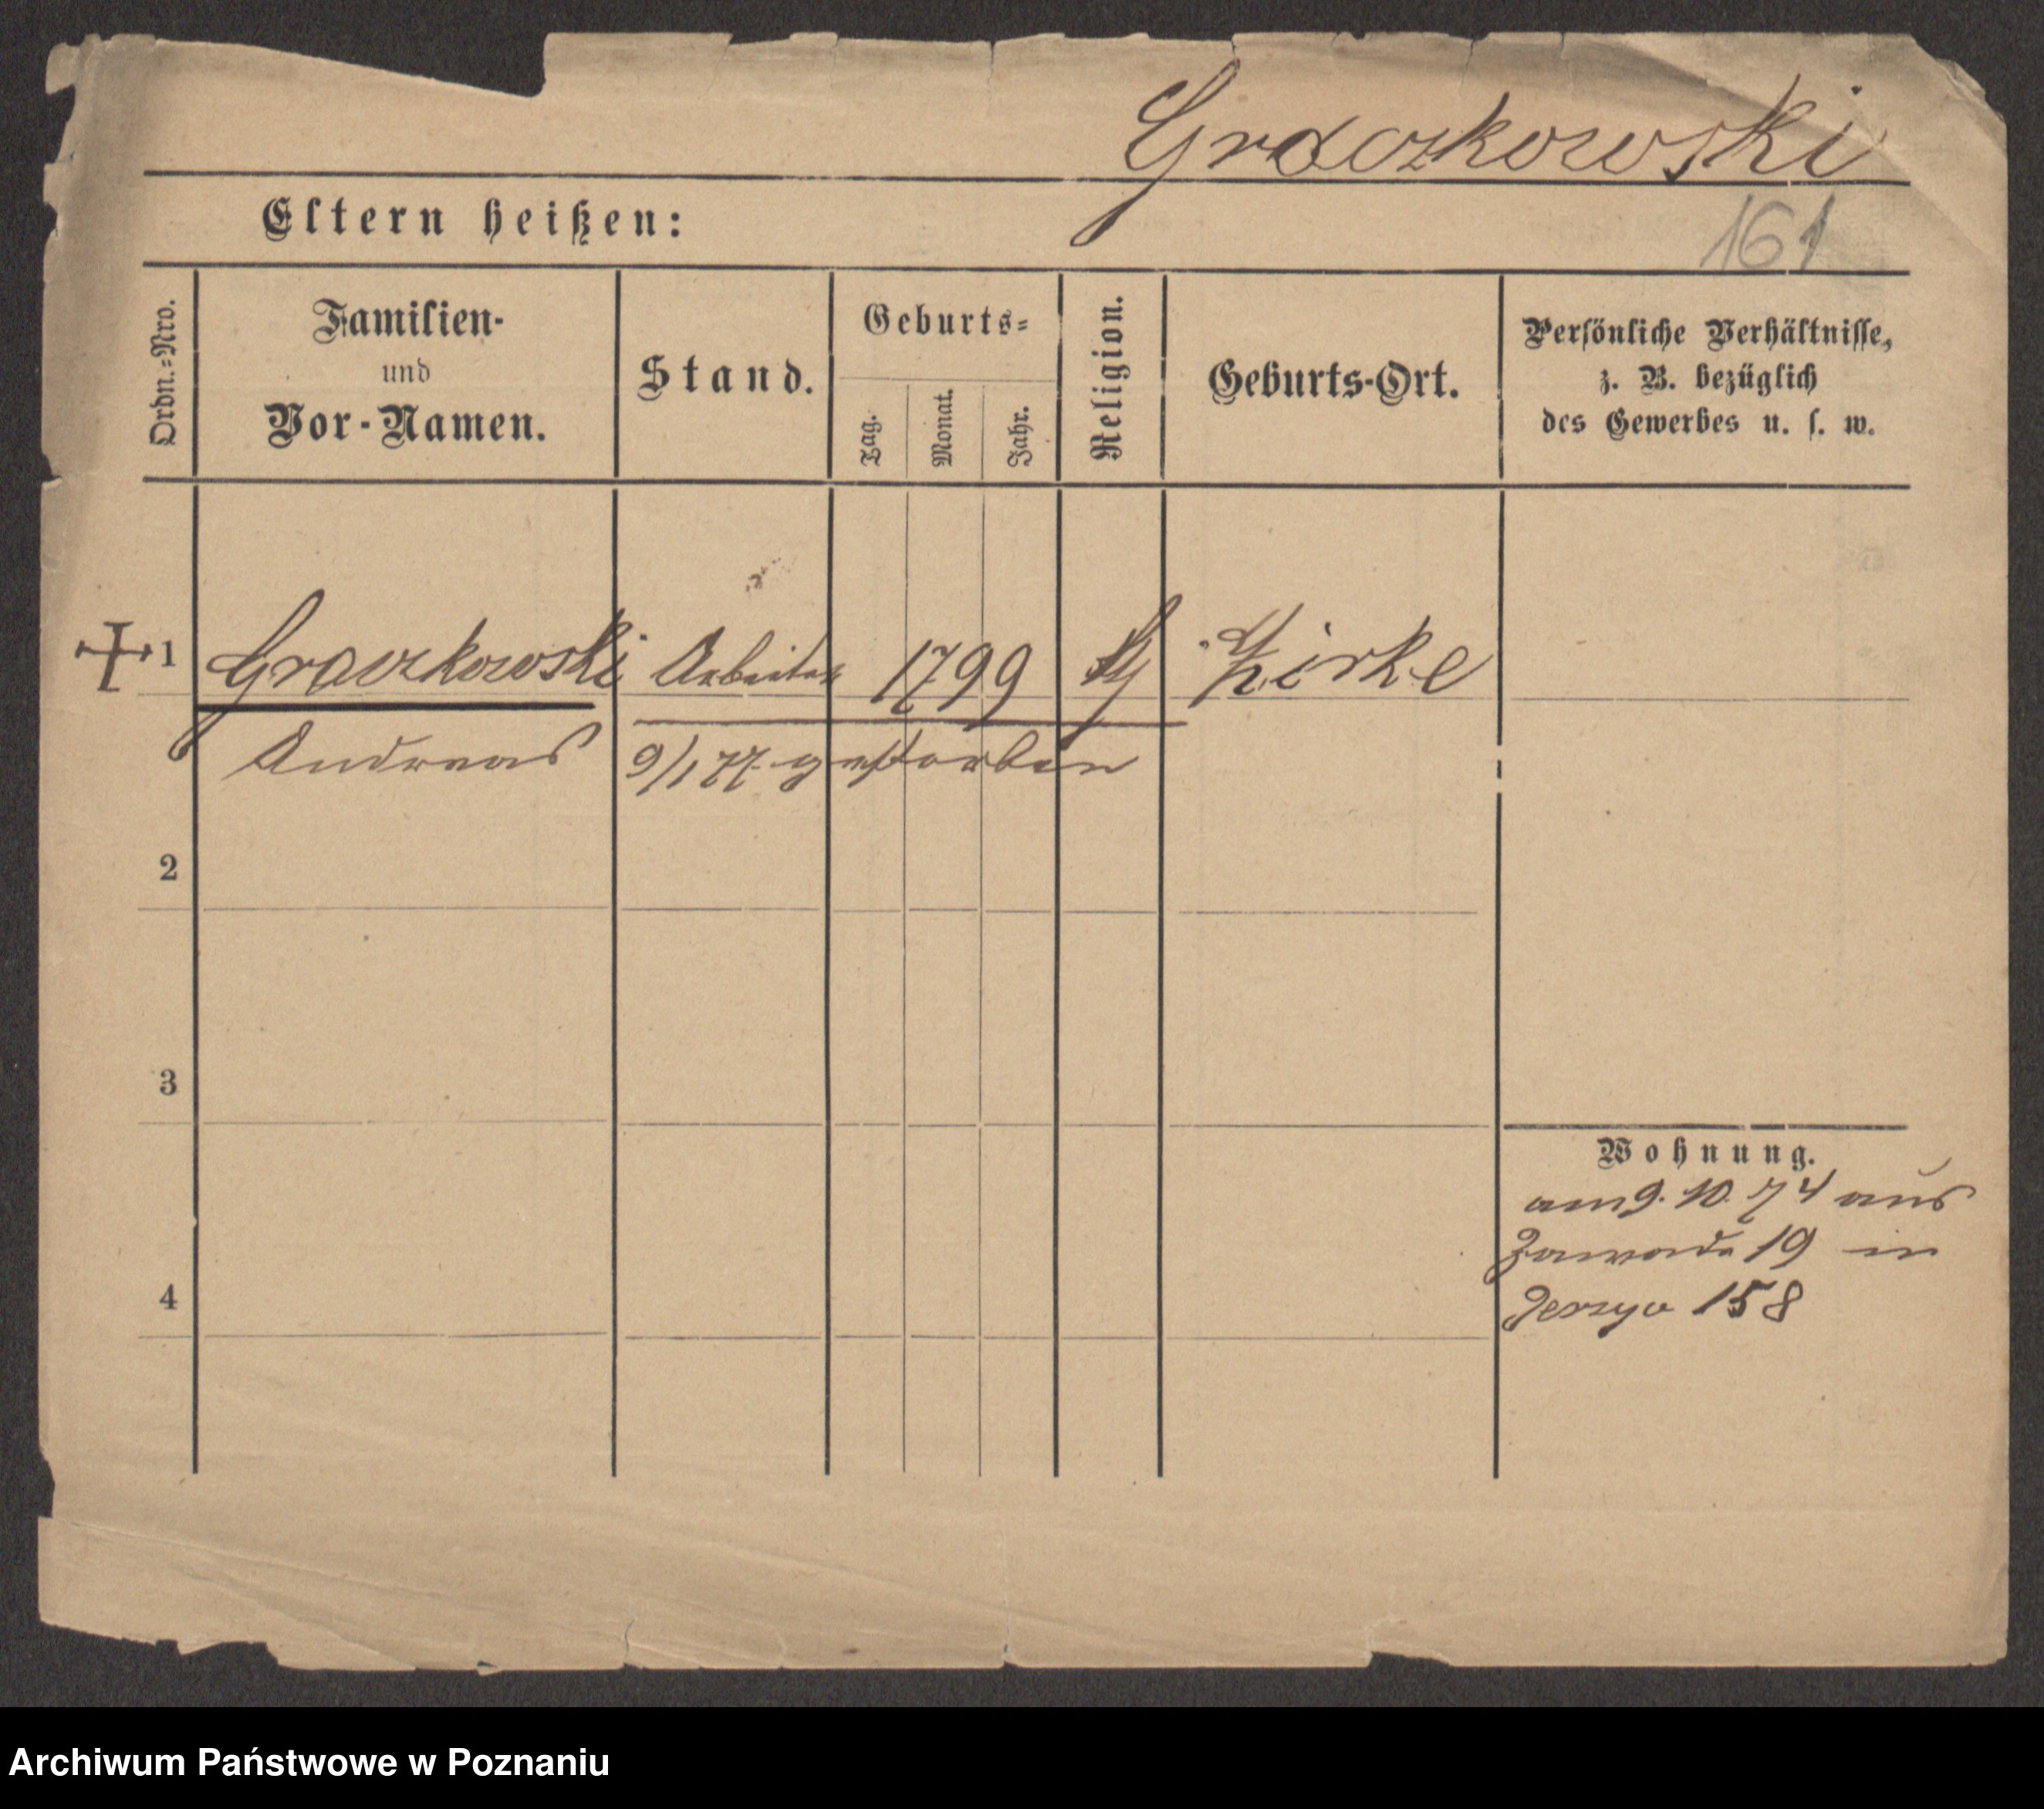 Graczkowski
Eltern heißen:
161
Ordn.=Nro.
Familien-
und
Vor-Namen.
Stand.
Geburts=
Tag.
Monat.
Jahr.
Religion.
Geburts-Ort.
Persönliche Verhältnisse,
z. B. bezüglich
des Gewerbes u. s. w.
1 Graczkowski Arbeiter 1799 Zirke
Andreas 9/1 77. gestorben
2
3
Wohnung.
am 9. 10. 74 aus
Zawade 19 in
4
Jerzyce 158
Archiwum Państwowe w Poznaniu